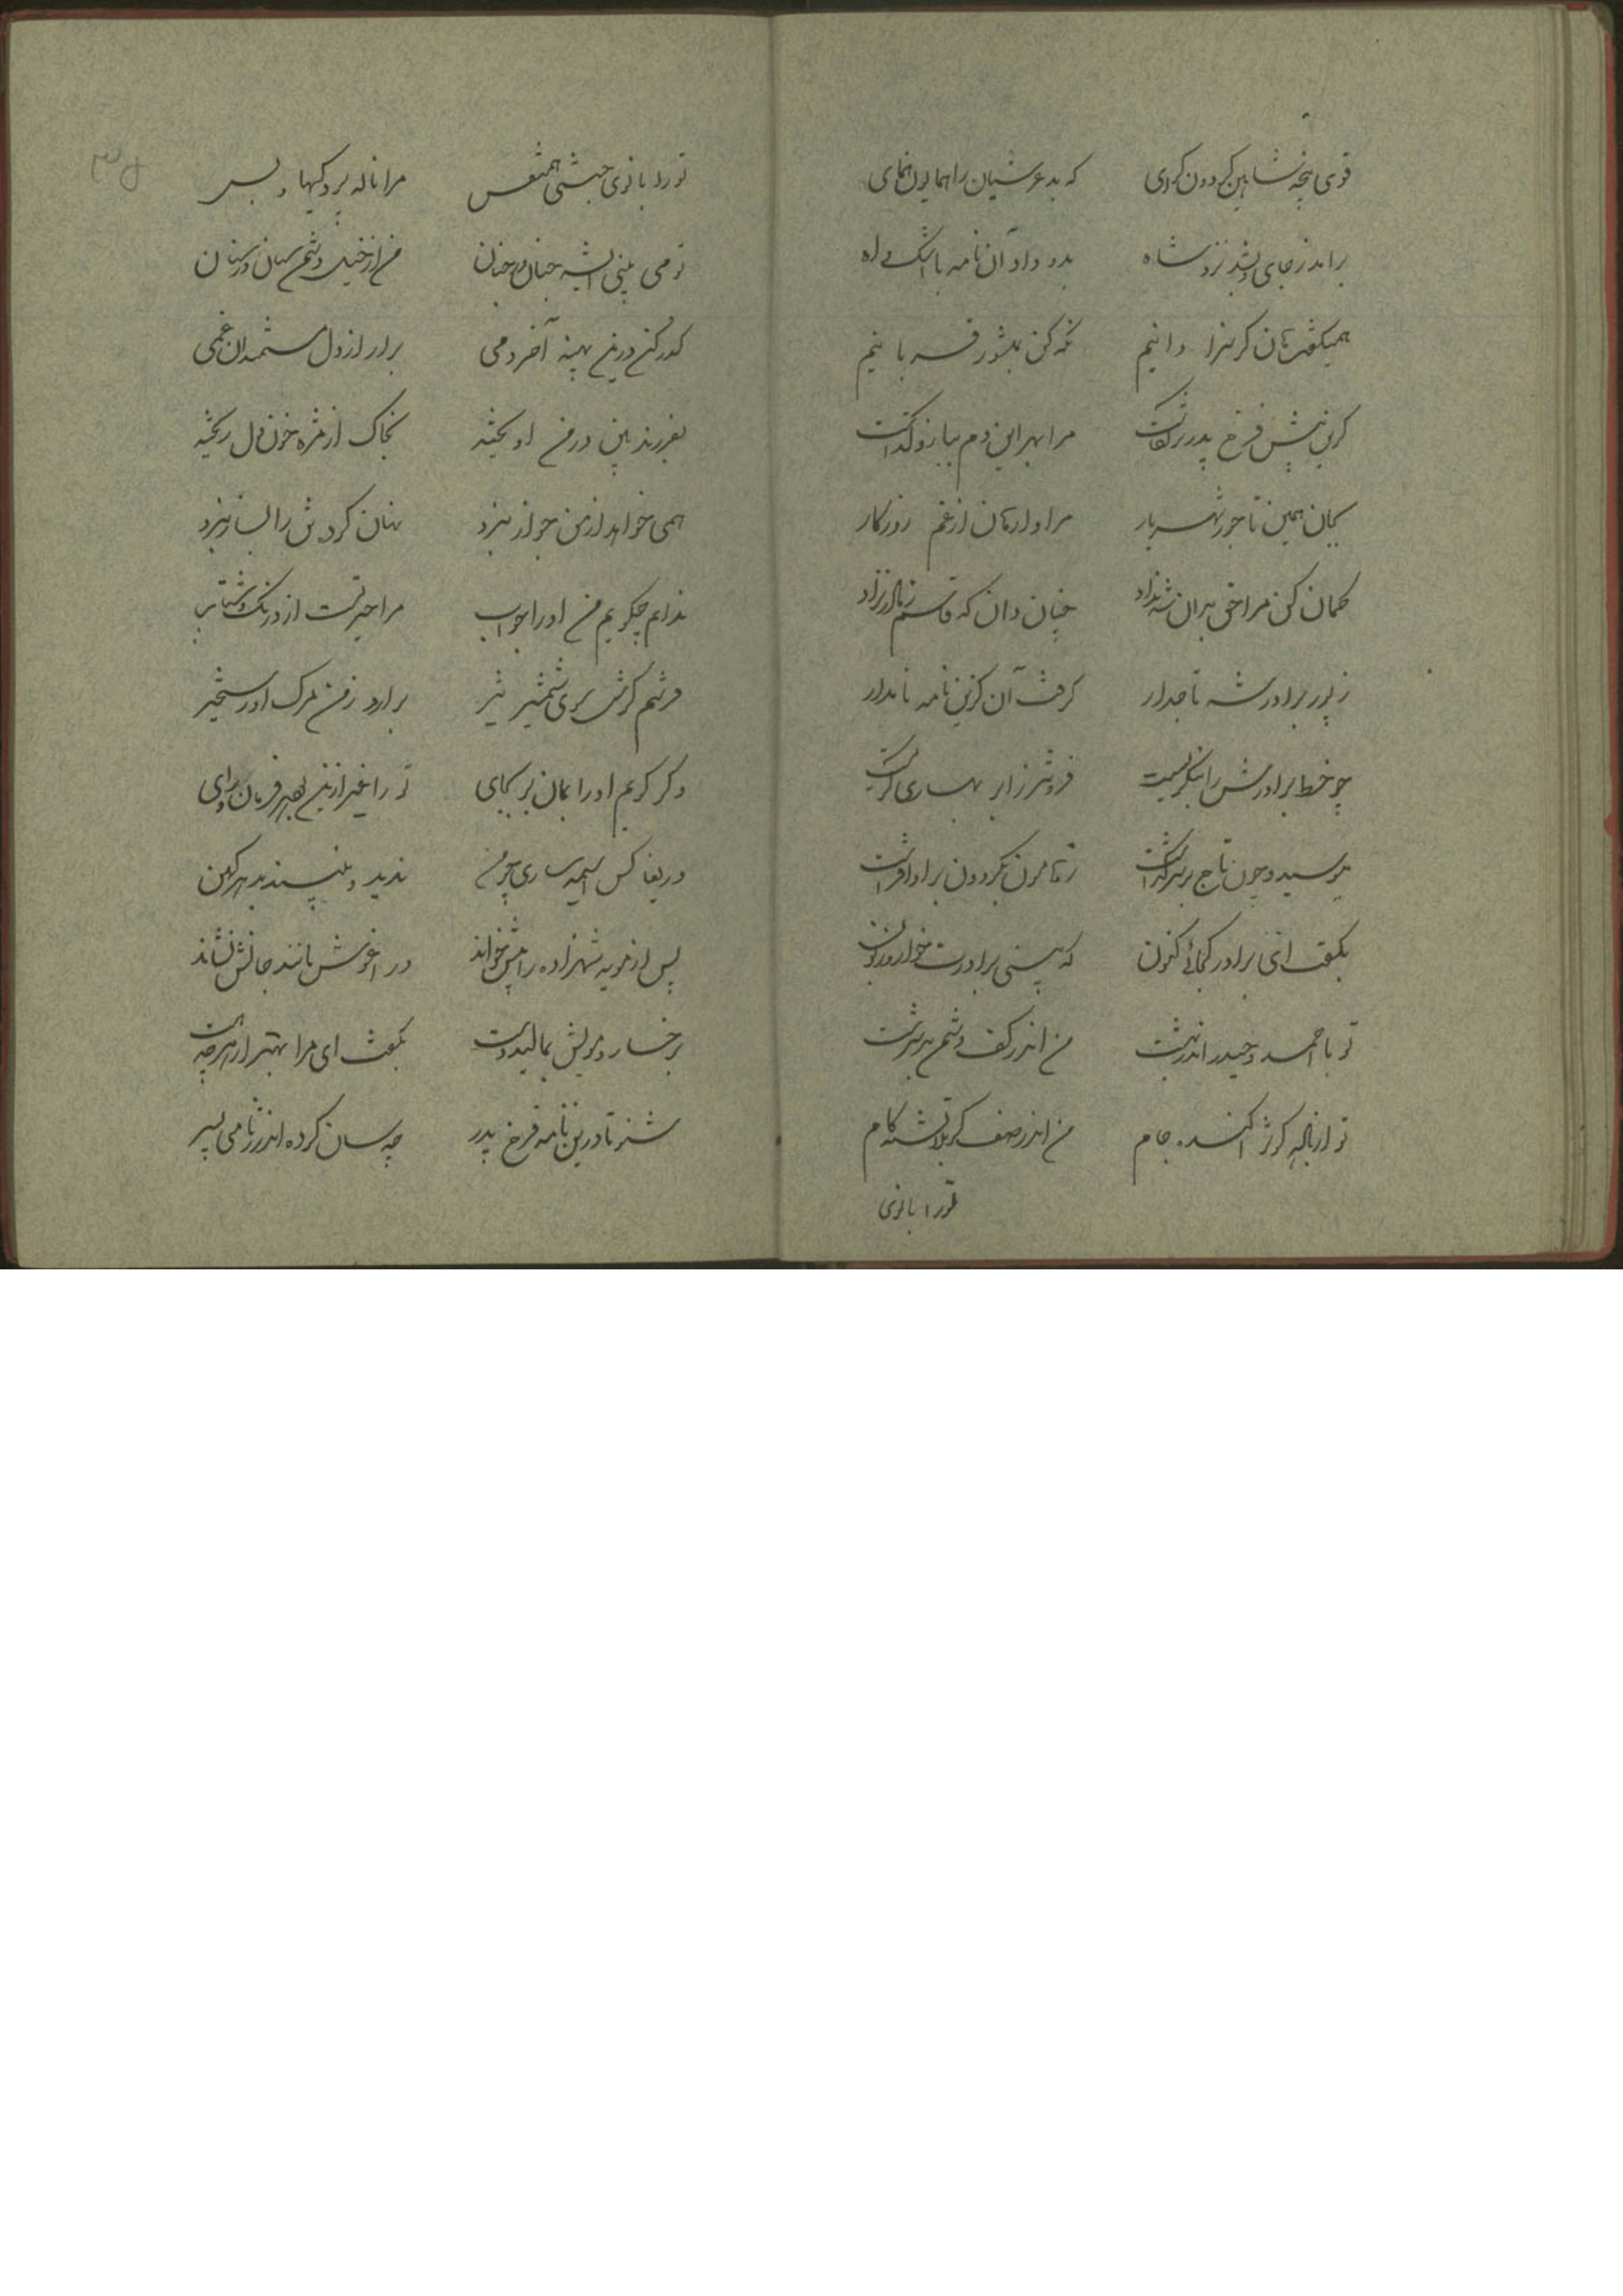 قوی پنجه شاهین کردون کرای که بد عرشیان را همایون همای
برآمد ز جای و بشد نزد شاه بدو داد آن نامه با اشک و اه
همیکفت کان کر سزا دانیم نکه کن بمنشور قربانیم
کزین پیش فرخ پدر بر نکاشت مرا بهر این دم ببازو کذاشت
بمان همین تاجور شهریار مرا وارهان از غم روزکار
کمان کن مرا خی بدان شه نژاد چنان دان که قاسم ز مادر نزاد
ز پور برادر شه تاجدار کرفت آن کزین نامه نامدار
چو خط برادرش را بنکریست فرو تر ز ابر بهاری کریست
ببوسید و چون تاج بر سر کذاشت ز هامون بکردون بر آوا فراشت
بکفت ای برادر کجائی کنون که بینی برادرت خوار و زبون
تو با احمد و حیدر اندر بهشت من اندر کف دشمن بد سرشت
تو از باده کوثر آکنده جام من اندر صف کربلا تشنه کام
تو را بانوی
تو را بانوی جنتی همنفس مرا ناله بردکیها و بس
تو می بینی آنسیه جنان در جنان من از خیل دشمن سنان در سنان
کذر کن درین پهنه آخر دمی برآر از دل مستمندان غمی
بفرزند بین در من آویخته بخاک از مژه خون دل ریخته
همی خواهد از من جواز نبرد نهان کردنش را بساز نبرد
ندانم چکویم من او را جواب مرا حیرتست از درنک و شتاب
فرستم کرش سوی شمشیر تیز برآرد ز من مرک او رستخیز
و کر کویم او را بمان بر بجای تو را غیر ازین بهر فرمان و رای
دریغا کس آسیمه ساری چو من ندید و نبیند بدهر کهن
پس از مویه شهزاده را پیش خواند در آغوش مانند جانش نشاند
برخسار و مویش بمالید دست بکفت ای مرا بهتر از هر چه هست
شنو تا درین نامه فرخ پدر چه سان کرده اندرز نامی پسر